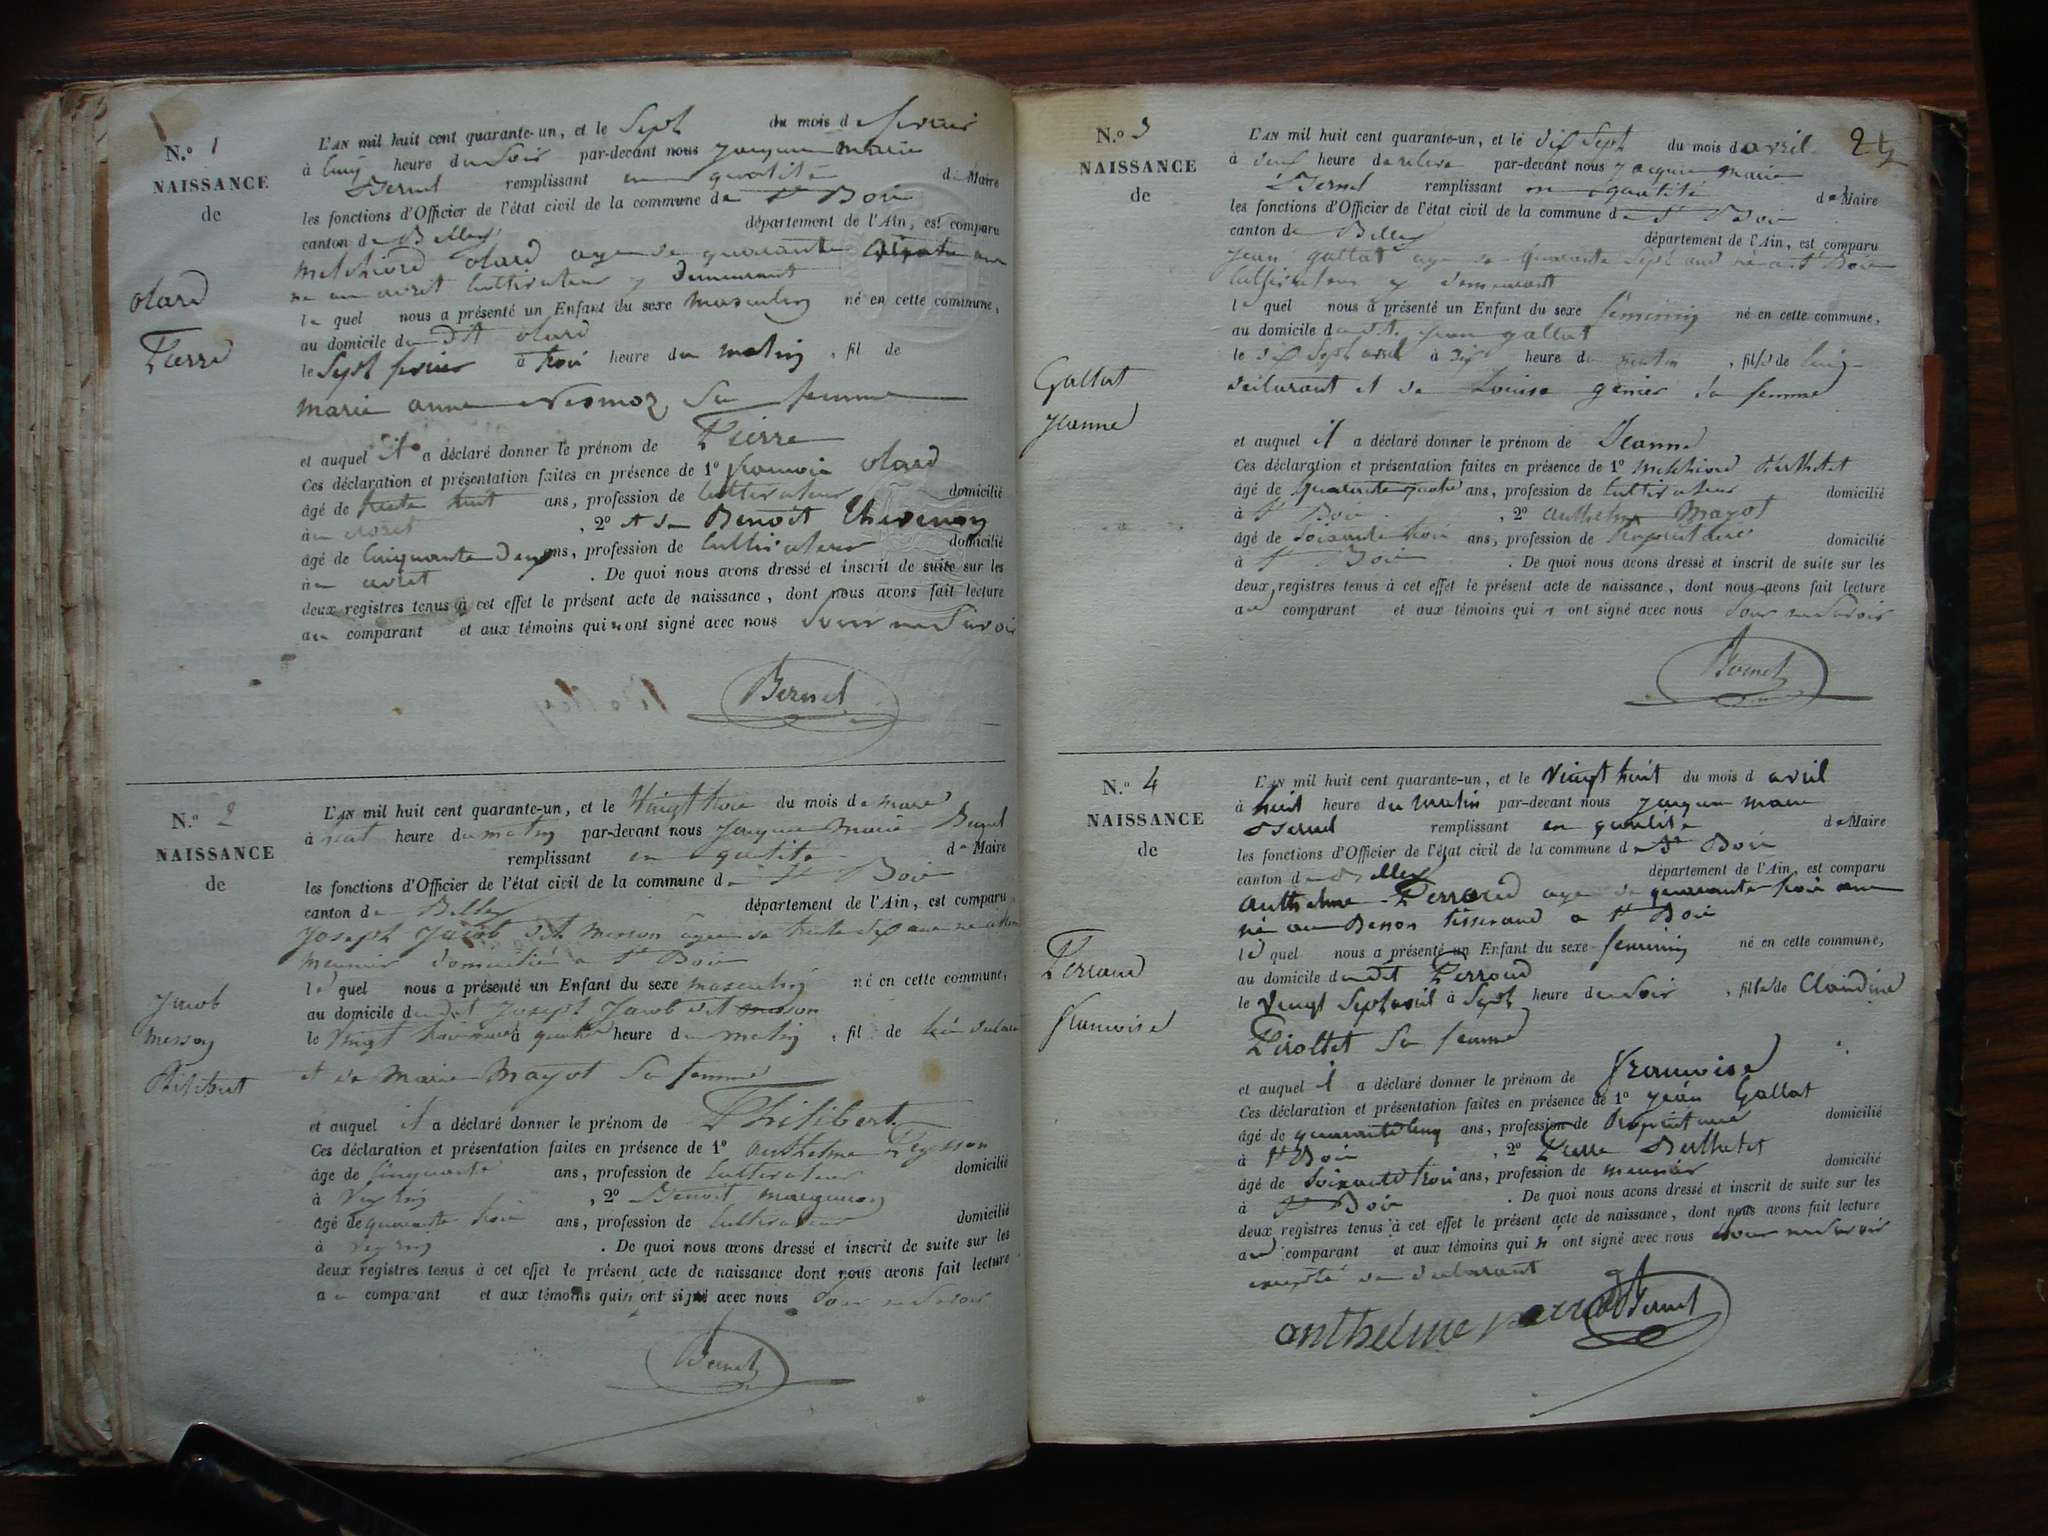 N.o 1
NAISSANCE
de
olard
Pierre
L'AN mil huit cent quarante-un, et le Sept du mois de fevrier
à cinq heure du soir par-devant nous jacques marie
Bernel remplissant en qualité de Maire
les fonctions d'Officier de l'état civil de la commune de St Bois
canton de Belley département de l'Ain, est comparu
melchiord olard age de quarante ans
ne au cultivateur y demeurant
le quel nous a présenté un Enfant du sexe masculin né en cette commune,
au domicile du dit olard
le Sept fevrier à trois heure du matin, fil de
marie anne Sa femme
et auquel il a déclaré donner le prénom de Pierre
Ces déclaration et présentation faites en présence de 1o francois olard
âgé de trente huit ans, profession de cultivateur domicilié
à , 2o et de Benoit thevenon
âgé de cinquante deux ans, profession de cultivateur domicilié
à . De quoi nous avons dressé et inscrit de suite sur les
deux registres tenus à cet effet le présent acte de naissance, dont nous avons fait lecture
au comparant et aux témoins qui n ont signé avec nous pour ne savoir
Bernel
N.o 2
NAISSANCE
de
jacob
messon
Philibert
L'AN mil huit cent quarante-un, et le Vingt trois du mois de mars
à huit heure du matin par-devant nous jacques marie Bernel
remplissant en qualité de Maire
les fonctions d'Officier de l'état civil de la commune de St Bois
canton de Belley département de l'Ain, est comparu
joseph jacob dit messon agé de trente dix ans ne
meunier domicilié a St Bois
le quel nous a présenté un Enfant du sexe masculin né en cette commune,
au domicile du dit joseph jacob dit messon
le Vingt trois mars à quatre heure du matin, fil de lui declarant
et de marie mayot sa femme
et auquel il a déclaré donner le prénom de Philibert
Ces déclaration et présentation faites en présence de 1o anthelme Peysson
âgé de cinquante ans, profession de cultivateur domicilié
à , 2o Benoit
âgé de quarante trois ans, profession de cultivateur domicilié
à . De quoi nous avons dressé et inscrit de suite sur les
deux registres tenus à cet effet le présent acte de naissance dont nous avons fait lecture
au comparant et aux témoins qui n ont signé avec nous pour ne savoir
Bernel
24
N.o 3
NAISSANCE
de
Gallat
jeanne
L'AN mil huit cent quarante-un, et le dix Sept du mois d avril
à deux heure de relevé par-devant nous jacques marie
Bernel remplissant en qualité de Maire
les fonctions d'Officier de l'état civil de la commune de St Bois
canton de Belley département de l'Ain, est comparu
jean gallat age de quarante Sept ans né a St Bois
cultivateur y demeurant
le quel nous a présenté un Enfant du sexe feminin né en cette commune,
au domicile du dit jean gallat
le dix Sept avril à dix heure du matin, fille de lui
declarant et de Louise genier sa femme
et auquel il a déclaré donner le prénom de Jeanne
Ces déclaration et présentation faites en présence de 1o melchiord Berthetet
âgé de quarante quatre ans, profession de cultivateur domicilié
à St Bois , 2o anthelme mayot
âgé de Soixante trois ans, profession de propriétaire domicilié
à St Bois . De quoi nous avons dressé et inscrit de suite sur les
deux registres tenus à cet effet le présent acte de naissance, dont nous avons fait lecture
au comparant et aux témoins qui n ont signé avec nous pour ne savoir
Bernel
N.o 4
NAISSANCE
de
Perroud
francoise
L'AN mil huit cent quarante-un, et le Vingt huit du mois d avril
à huit heure du matin par-devant nous jacques marie
Bernel remplissant en qualité de Maire
les fonctions d'Officier de l'état civil de la commune de St Bois
canton de Belley département de l'Ain, est comparu
anthelme Perroud age de quarante trois ans
né au tisserand a St Bois
le quel nous a présenté un Enfant du sexe feminin né en cette commune,
au domicile du dit Perroud
le Vingt Sept avril à Sept heure du soir, fille de Claudine
Pirollet Sa femme
et auquel il a déclaré donner le prénom de francoise
Ces déclaration et présentation faites en présence de 1o jean Gallat
âgé de quarante cinq ans, profession de propriétaire domicilié
à St Bois , 2o Pierre Berthetet
âgé de Soixante trois ans, profession de meunier domicilié
à St Bois . De quoi nous avons dressé et inscrit de suite sur les
deux registres tenus à cet effet le présent acte de naissance, dont nous avons fait lecture
au comparant et aux témoins qui n ont signé avec nous pour ne savoir
excepté le declarant
anthelme perroud Bernel